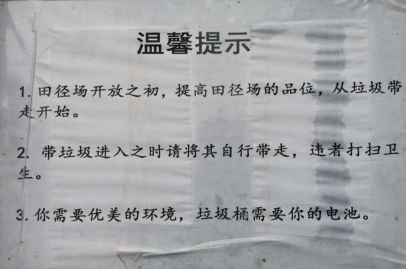 温馨提示
1.田径场开放之初，提高田径场的品位，从垃圾带
走开始。
2. 带垃圾进入之时请将其自行带走，违者打扫卫
生。
3.你需要优美的环境，垃圾桶需要你的电池。